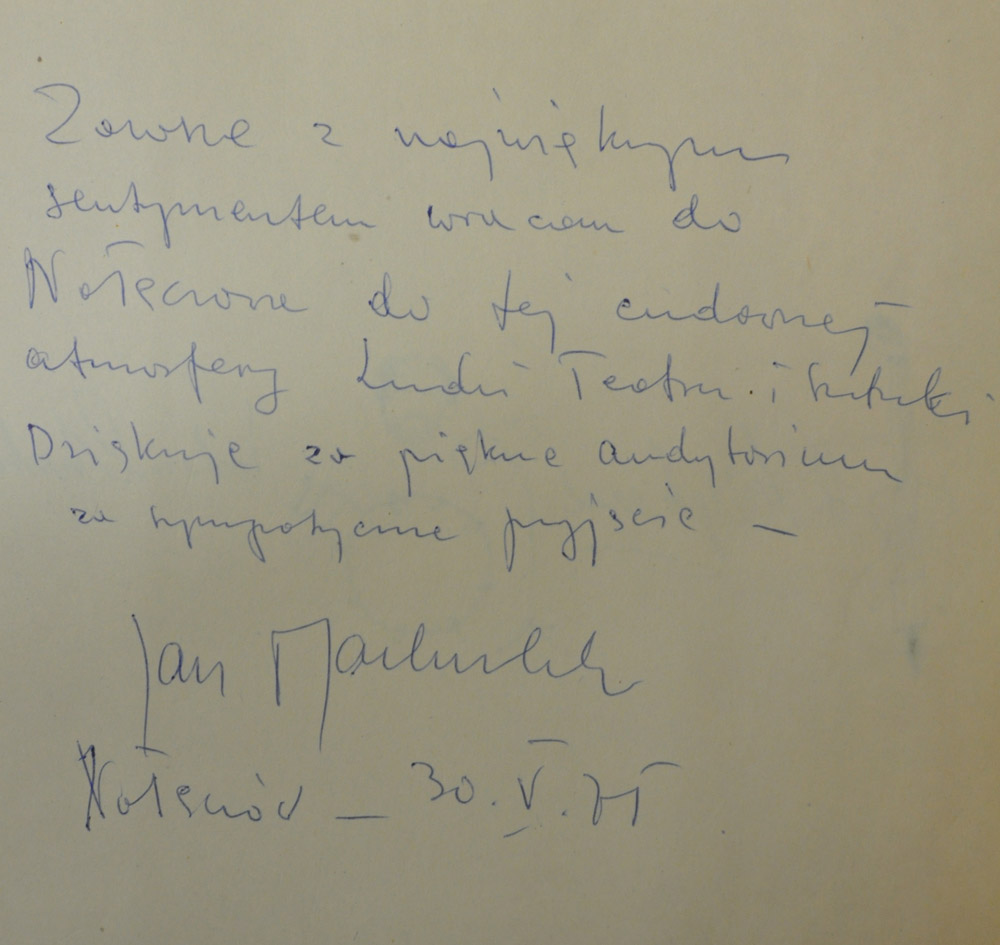 Zawsze z największym
sentymentem wracam do
Nałęczowa do tej cudownej
atmosfery Ludzi Teatru i Sztuki
Dziękuję za piękne audytorium
za sympatyczne przyjście –
Jan Machulski
Nałęczów – 30.V.75